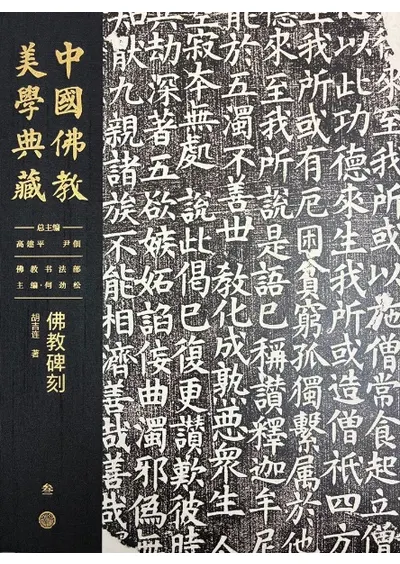 中國佛教
美學典藏
总主编
高建平 尹佃
佛教书法部
主编·何劲松
佛教碑刻
胡吉连 著
叁
來至我所或以施僧常食起立僧
以此功德來生我所或造僧祇四方
生我所或有厄困貧窮孤獨繫屬於他
德來至我所說是語已稱讚釋迦牟尼
能於五濁不善世 教化成孰惡眾生
空寂本無處 說此偈已復更讚歎彼時
劫深著五欲嫉妬諂佞曲濁邪偽無
知猒九親諸族不能相濟善哉善哉